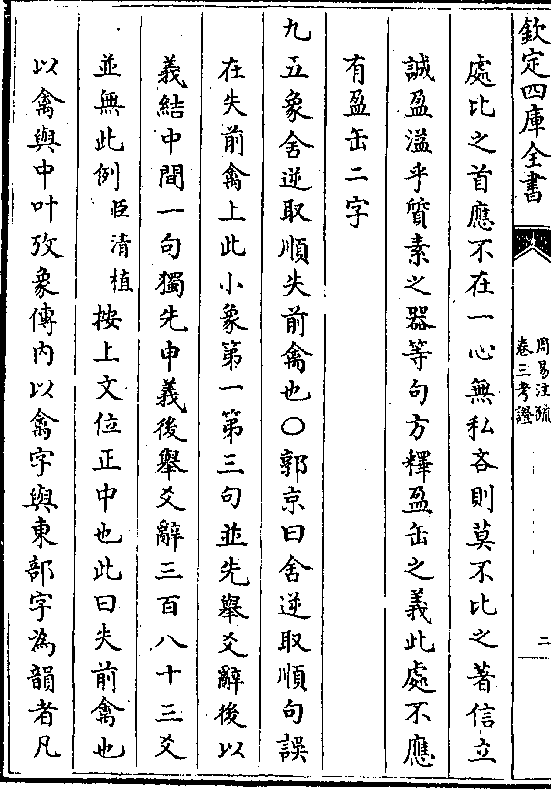 欽定四庫全書
周易注疏
卷三考證
二
處比之首應不在一心無私吝則莫不比之著信立
誠盈溢乎質素之器等句方釋盈缶之義此處不應
有盈缶二字
九五象舍逆取順失前禽也○郭京曰舍逆取順句誤
在失前禽上此小象第一第三句並先舉爻辭後以
義結中間一句獨先申義後舉爻辭三百八十三爻
並無此例臣清植按上文位正中也此曰失前禽也
以禽與中叶攷象傳內以禽字與東部字為韻者凡